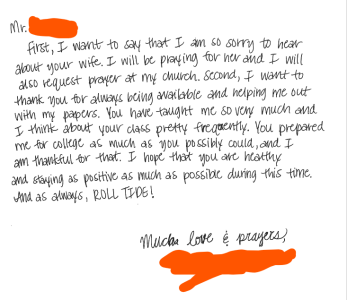 Mr.
First, I want to say that I am so sorry to hear
about your wife. I will be praying for her and I will
also request prayer at my church. Second, I want to
thank you for always being available and helping me out
with my papers. You have taught me so very much and
I think about your class pretty frequently. You prepared
me for college as much as you possibly could, and I
am thankful for that. I hope that you are healthy
and staying as positive as much as possible during this time.
And as always, ROLL TIDE!
Much love & prayers,